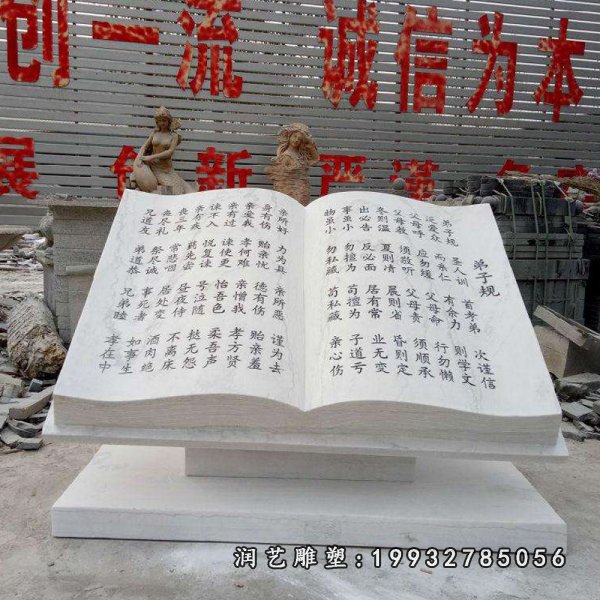 创一流 诚信为本
展 创新 严谨
弟子规
弟子规 圣人训 首考弟 次谨信
泛爱众 而亲仁 有余力 则学文
父母呼 应勿缓 父母命 行勿懒
父母教 须敬听 父母责 须顺承
冬则温 夏则清 晨则省 昏则定
出必告 反必面 居有常 业无变
事虽小 勿擅为 苟擅为 子道亏
物虽小 勿私藏 苟私藏 亲心伤
亲所好 力为具 亲所恶 谨为去
身有伤 贻亲忧 德有伤 贻亲羞
亲爱我 孝何难 亲憎我 孝方贤
亲有过 谏使更 怡吾色 柔吾声
谏不入 悦复谏 号泣随 挞无怨
亲有疾 药先尝 昼夜侍 不离床
丧三年 常悲咽 居处变 酒肉绝
丧尽礼 祭尽诚 事死者 如事生
兄道友 弟道恭 兄弟睦 孝在中
润艺雕塑:19932785056